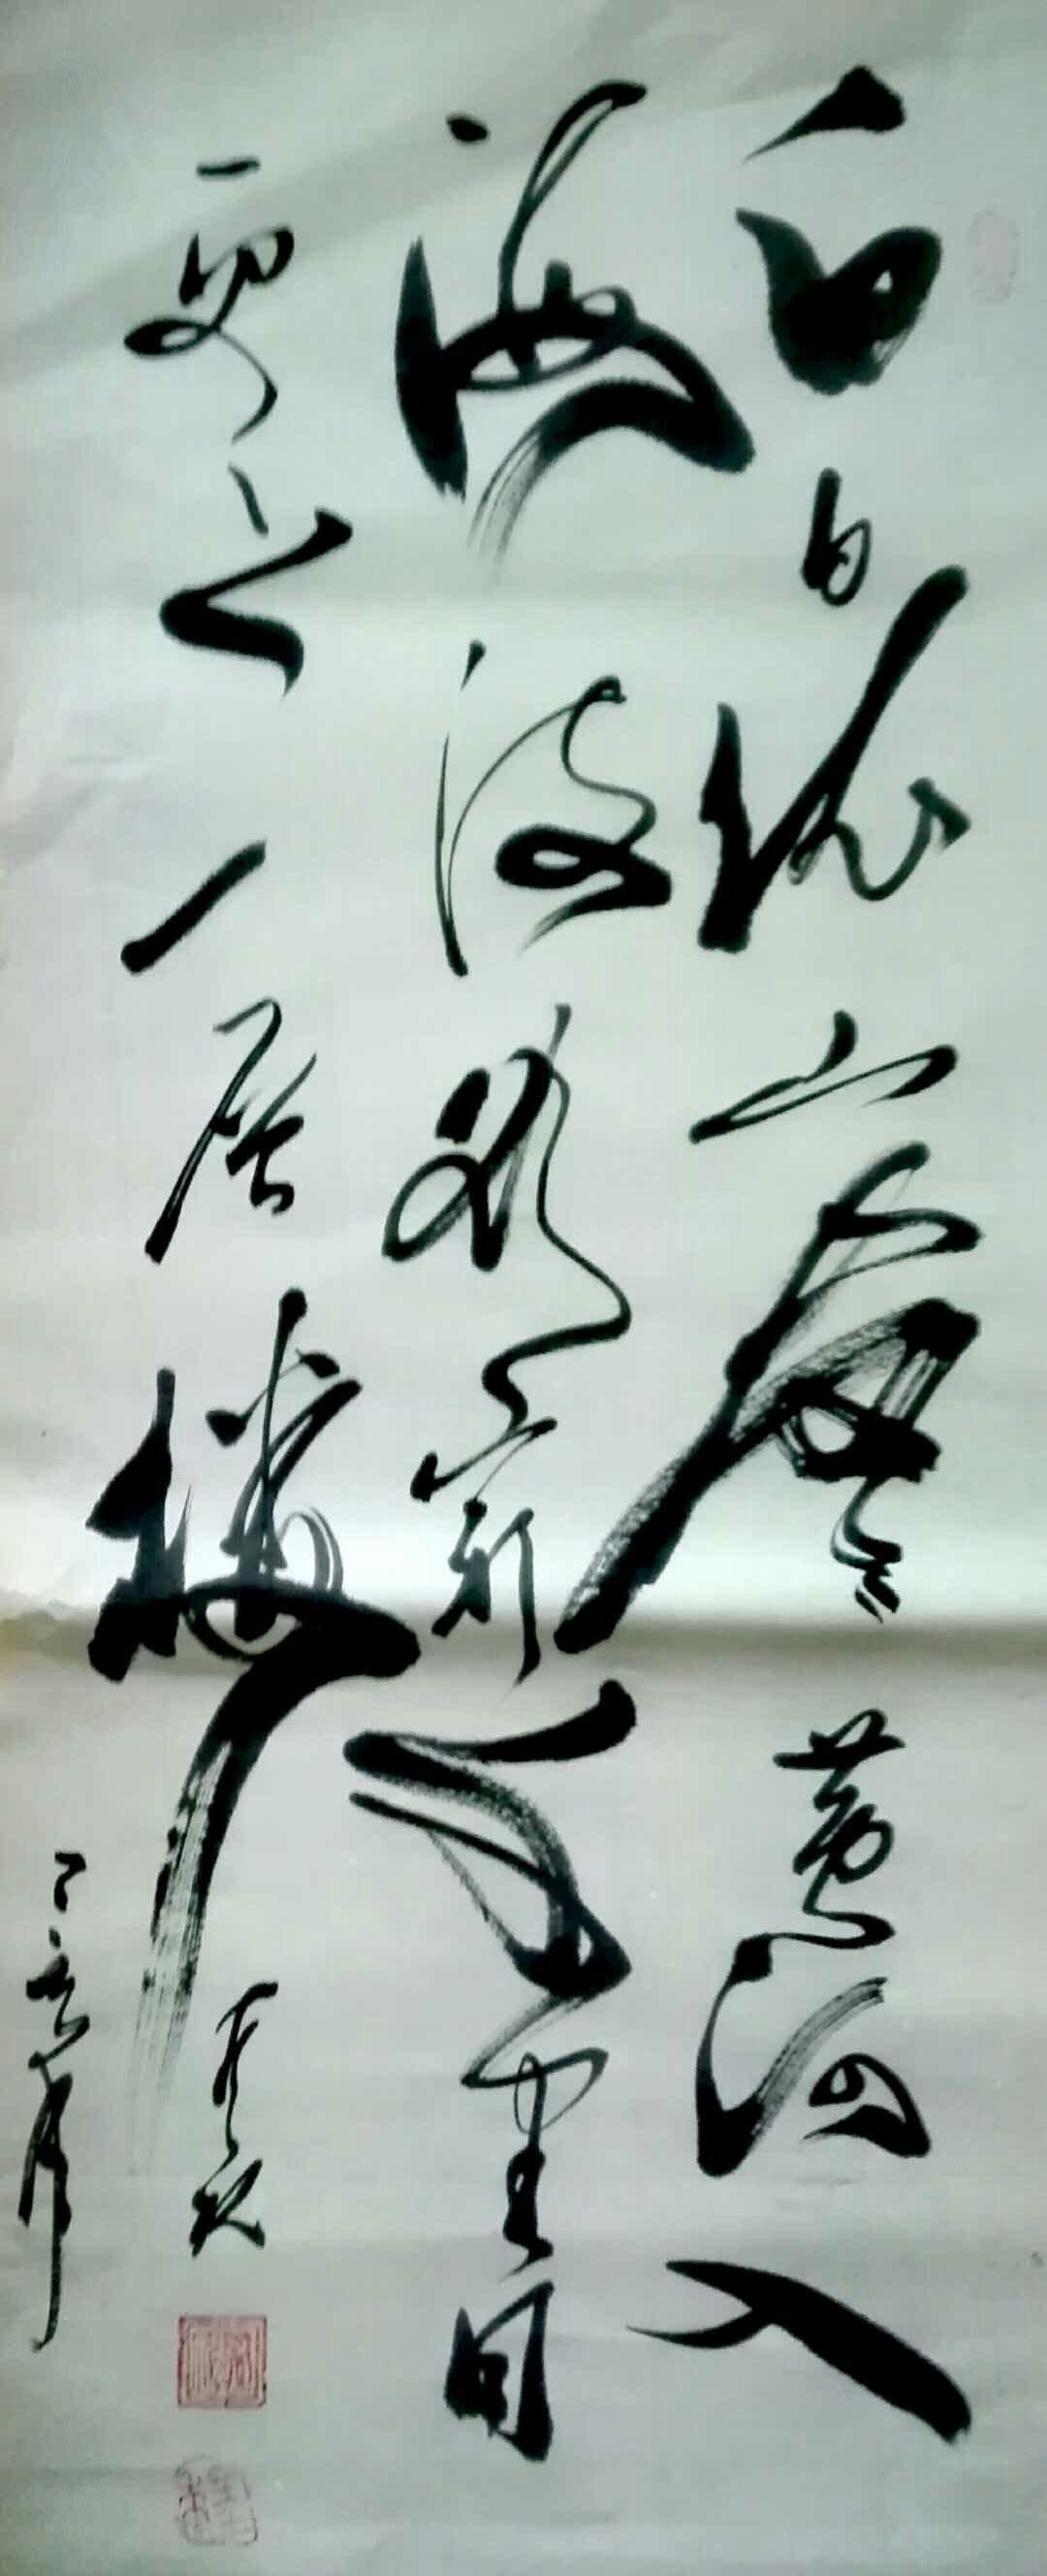 白日依山盡黄河入
海流欲窮千里目
更上一層樓
丁亥